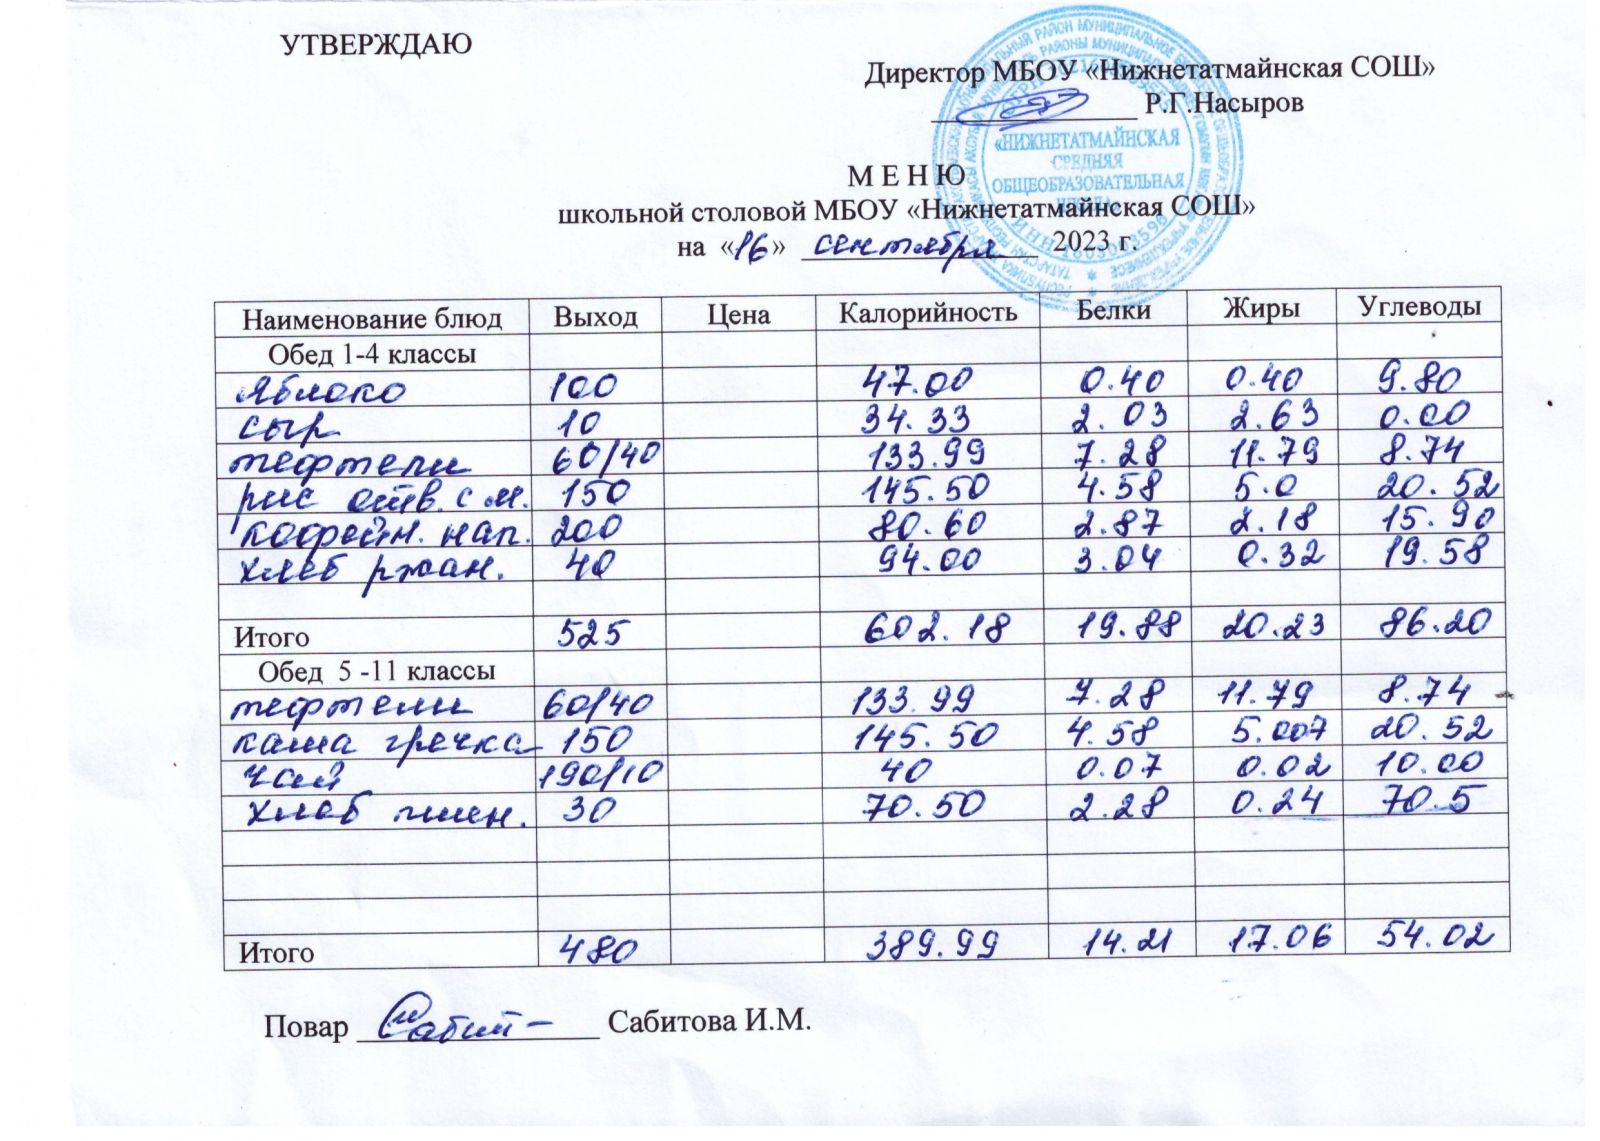 УТВЕРЖДАЮ
Директор МБОУ «Нижнетатмайнская СОШ»
Р.Г.Насыров
«НИЖНЕТАТМАЙНСКАЯ
СРЕДНЯЯ
ОБЩЕОБРАЗОВАТЕЛЬНАЯ
М Е Н Ю
школьной столовой МБОУ «Нижнетатмайнская СОШ»
на «16» сентября 2023 г.
Наименование блюд Выход Цена Калорийность Белки Жиры Углеводы
Обед 1-4 классы
Яблоко 100 47.00 0.40 0.40 9.80
сыр 10 34.33 2.03 2.63 0.00
тефтели 60/40 133.99 7.28 11.79 8.74
рис отв. с м. 150 145.50 4.58 5.0 20.52
кофейн. нап. 200 80.60 2.87 2.18 15.90
хлеб ржан. 40 94.00 3.04 0.32 19.58
Итого 525 602.18 19.88 20.23 86.20
Обед 5 -11 классы
тефтели 60/40 133.99 7.28 11.79 8.74
каша гречка 150 145.50 4.58 5.007 20.52
чай 190/10 40 0.07 0.02 10.00
хлеб пшен. 30 70.50 2.28 0.24 70.5
Итого 480 389.99 14.21 17.06 54.02
Повар Сабит Сабитова И.М.